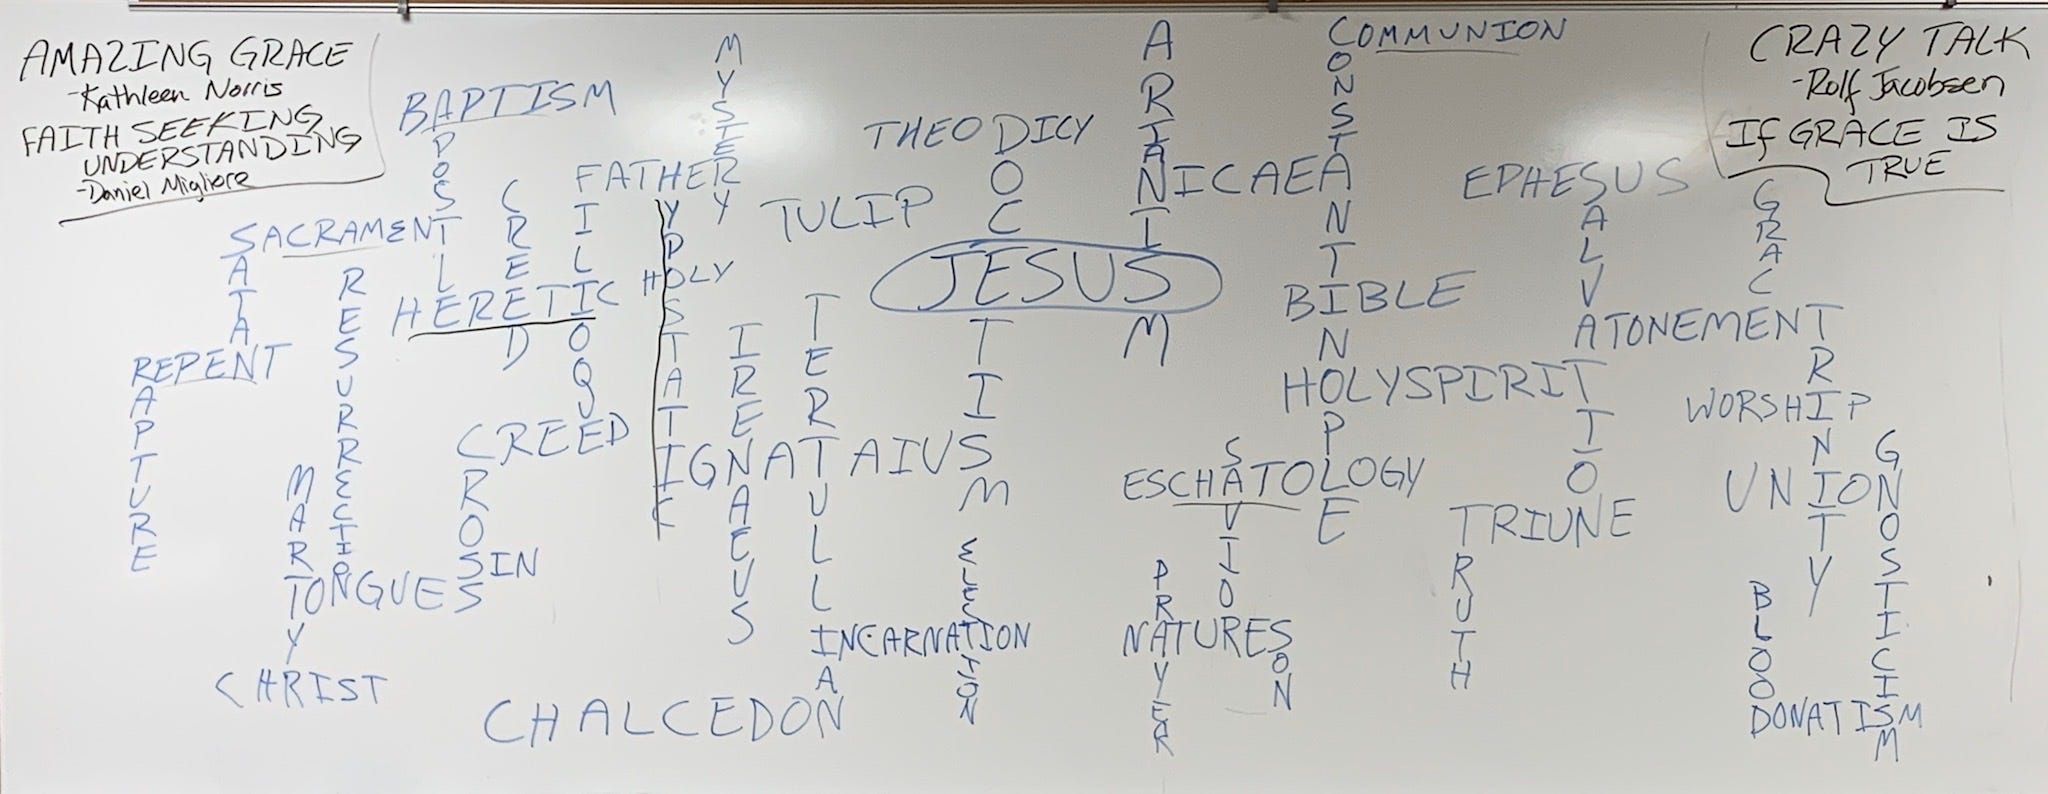 AMAZING GRACE
-Kathleen Norris
FAITH SEEKING
UNDERSTANDING
-Daniel Migliore
CRAZY TALK
-Rolf Jacobsen
If GRACE IS
TRUE
BAPTISM
APOSTLE
SACRAMENT
SATAN
REPENT
RAPTURE
RESURRECTION
MARTYR
TONGUES
CHRIST
CREED
HERETIC
FATHER
FILIOQUE
MYSTERY
HYPOSTATIC
HOLY
CREED
CROSS
SIN
IRENAEUS
TERTULLIAN
IGNATAIUS
TULIP
THEODICY
DOCETISM
JESUS
ARIANISM
NICAEA
COMMUNION
CONSTANTINOPLE
EPHESUS
SALVATION
GRACE
BIBLE
ATONEMENT
TRINITY
HOLYSPIRIT
WORSHIP
UNION
GNOSTICISM
ESCHATOLOGY
SAVIOR
TRIUNE
TRUTH
ELECTION
INCARNATION
CHALCEDON
PRAYER
NATURES
SON
BLOOD
DONATISM